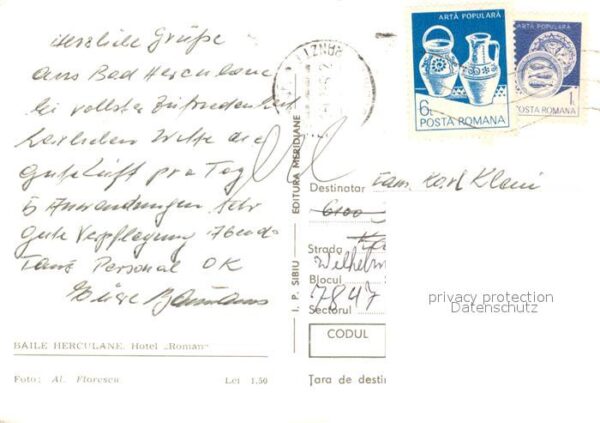 Herzliche Grüße
aus Bad Herculane
bei vollster Zufriedenheit
herrliches Wetter die
gute Luft pro Tag
5 Anwendungen sehr
gute Verpflegung Abends
Tanz Personal OK
BAILE HERCULANE. Hotel „Roman"
Foto: Al. Florescu
Lei 1,50
I. P. SIBIU — EDITURA MERIDIANE
ARTĂ POPULARĂ
6L
POSTA ROMANA
ARTĂ POPULARĂ
1L
POSTA ROMANA
Destinatar Fam. Karl Klein
6100
Strada
Wilhelm
Blocul
7847
Sectorul
CODUL
Țara de destin
privacy protection
Datenschutz